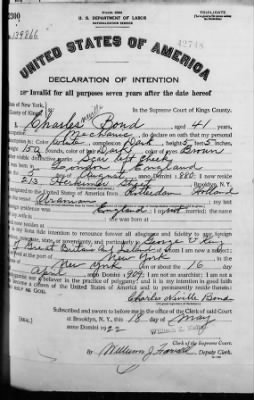 TRIPLICATE
U. S. DEPARTMENT OF LABOR
NATURALIZATION SERVICE
UNITED STATES OF AMERICA
DECLARATION OF INTENTION
Invalid for all purposes seven years after the date hereof
of New York,
In the Supreme Court of Kings County.
County of Kings
Charles Neville Bond, aged 41 years,
occupation Mechanic, do declare on oath that my personal
description is: Color White, complexion Dark, height 5 feet 5 inches,
weight 150 pounds, color of hair, color of eyes Brown
other visible distinctive marks Scar left cheek
London England
5 day of August, anno Domini 1880; I now reside
at 213 Street, Brooklyn, N. Y.
emigrated to the United States of America from Rotterdam Holland
England; I am not married; the name
It is my bona fide intention to renounce forever all allegiance and fidelity to any foreign
prince, potentate, state, or sovereignty, and particularly to George V King
of I am now a subject;
I arrived at the port of New York
New York on or about the 16 day
April, anno Domini 1909; I am not an anarchist; I am not a
polygamist nor a believer in the practice of polygamy; and it is my intention in good faith
to become a citizen of the United States of America and to permanently reside therein:
SO HELP ME GOD.
Charles Neville Bond
Subscribed and sworn to before me in the office of the Clerk of said Court
at Brooklyn, N. Y., this 18 day of May
[SEAL.]
anno Domini 1922
Clerk of the Supreme Court.
By William J. Deputy Clerk.